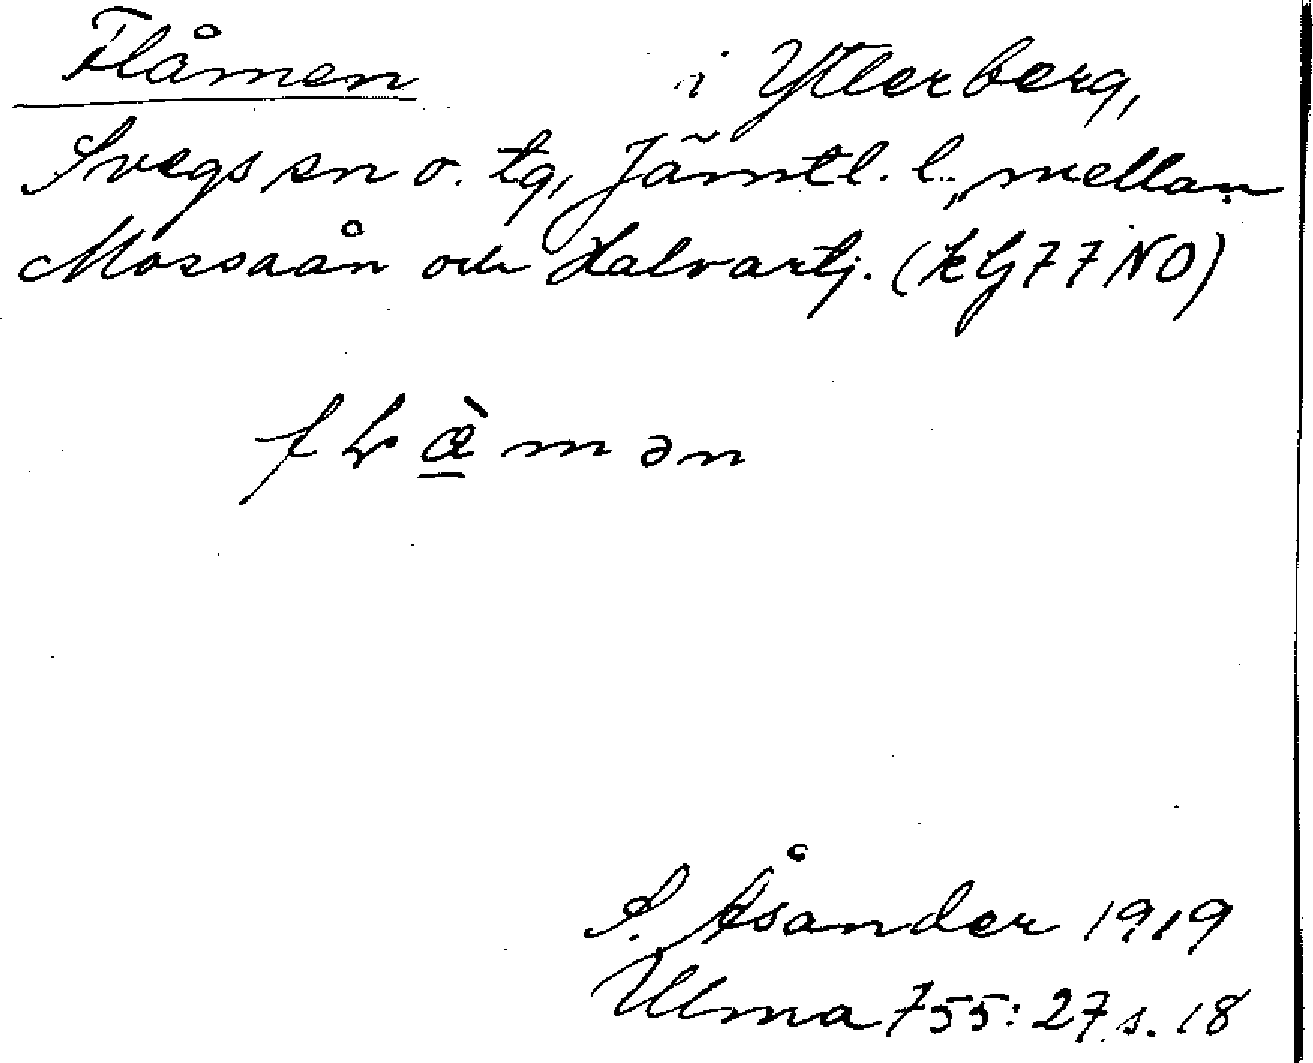 Flåmen i Ytterberg,
Svegs sn o. tg, Jämtl. l., mellan
Mossaån och Halvartj. (kG 77 NO)
fłœ̱̀mən
S. Åsander 1919
Ulma 755:27, s. 18